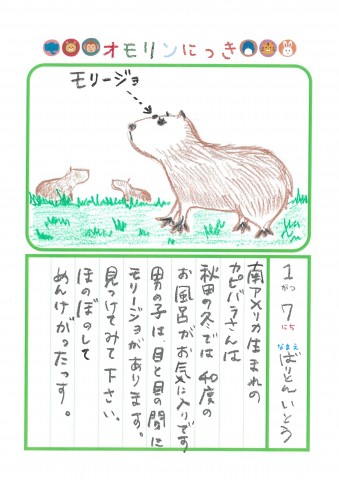 オモリンにっき
モリージョ
1がつ7にち
なまえ ばりとんいとう
南アメリカ生まれの
カピバラさんは
秋田の冬では40度の
お風呂がお気に入りです
男の子は、目と鼻の間に
モリージョがあります。
見つけてみて下さい。
ほのぼのして
めんけがったっす。